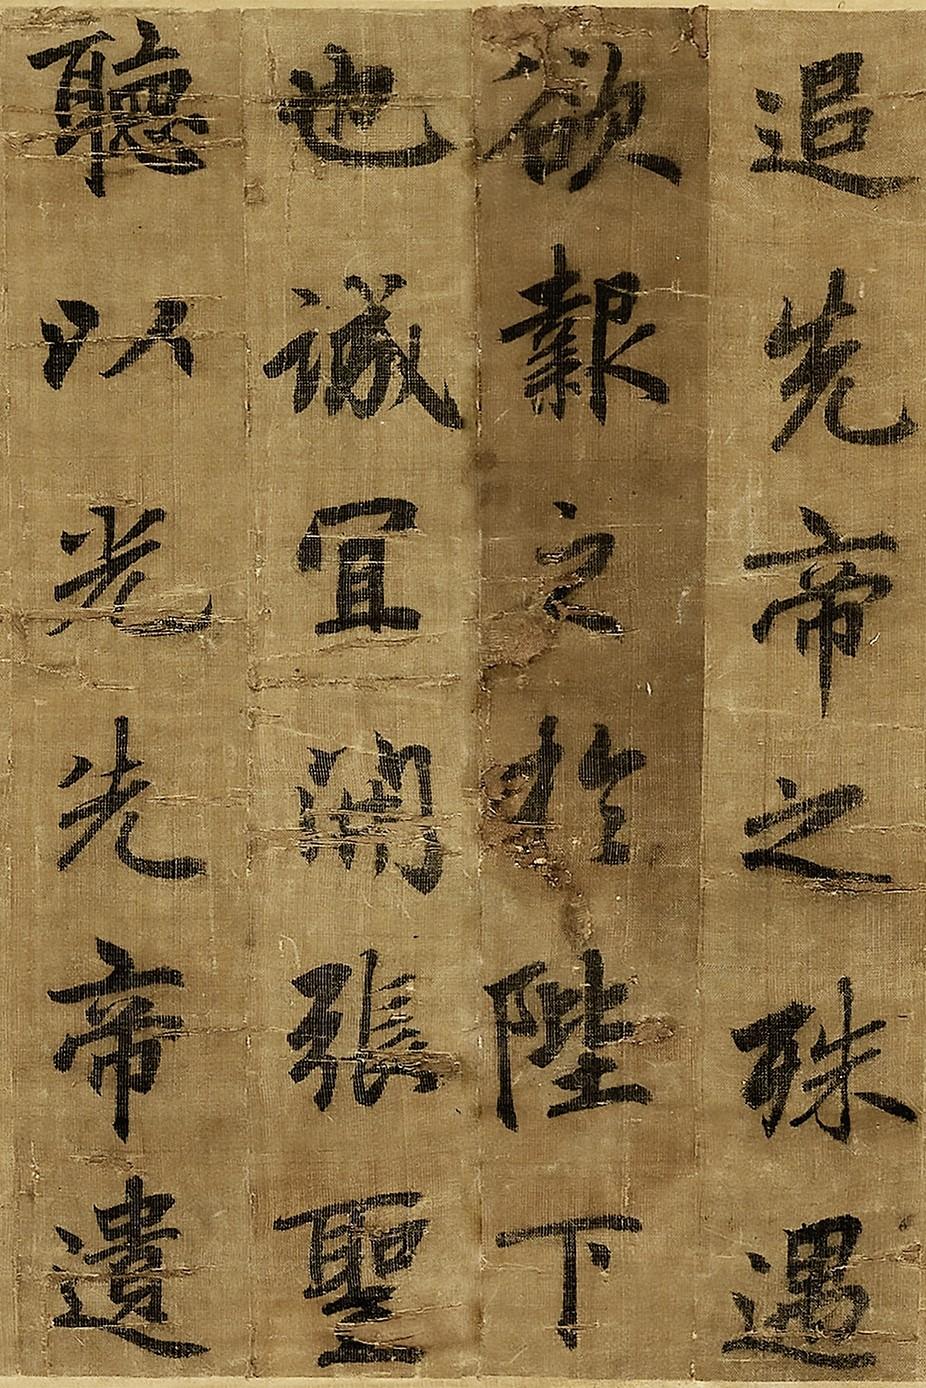 追先帝之殊遇
欲報之於陛下
也誠宜開張聖
聽以光先帝遺